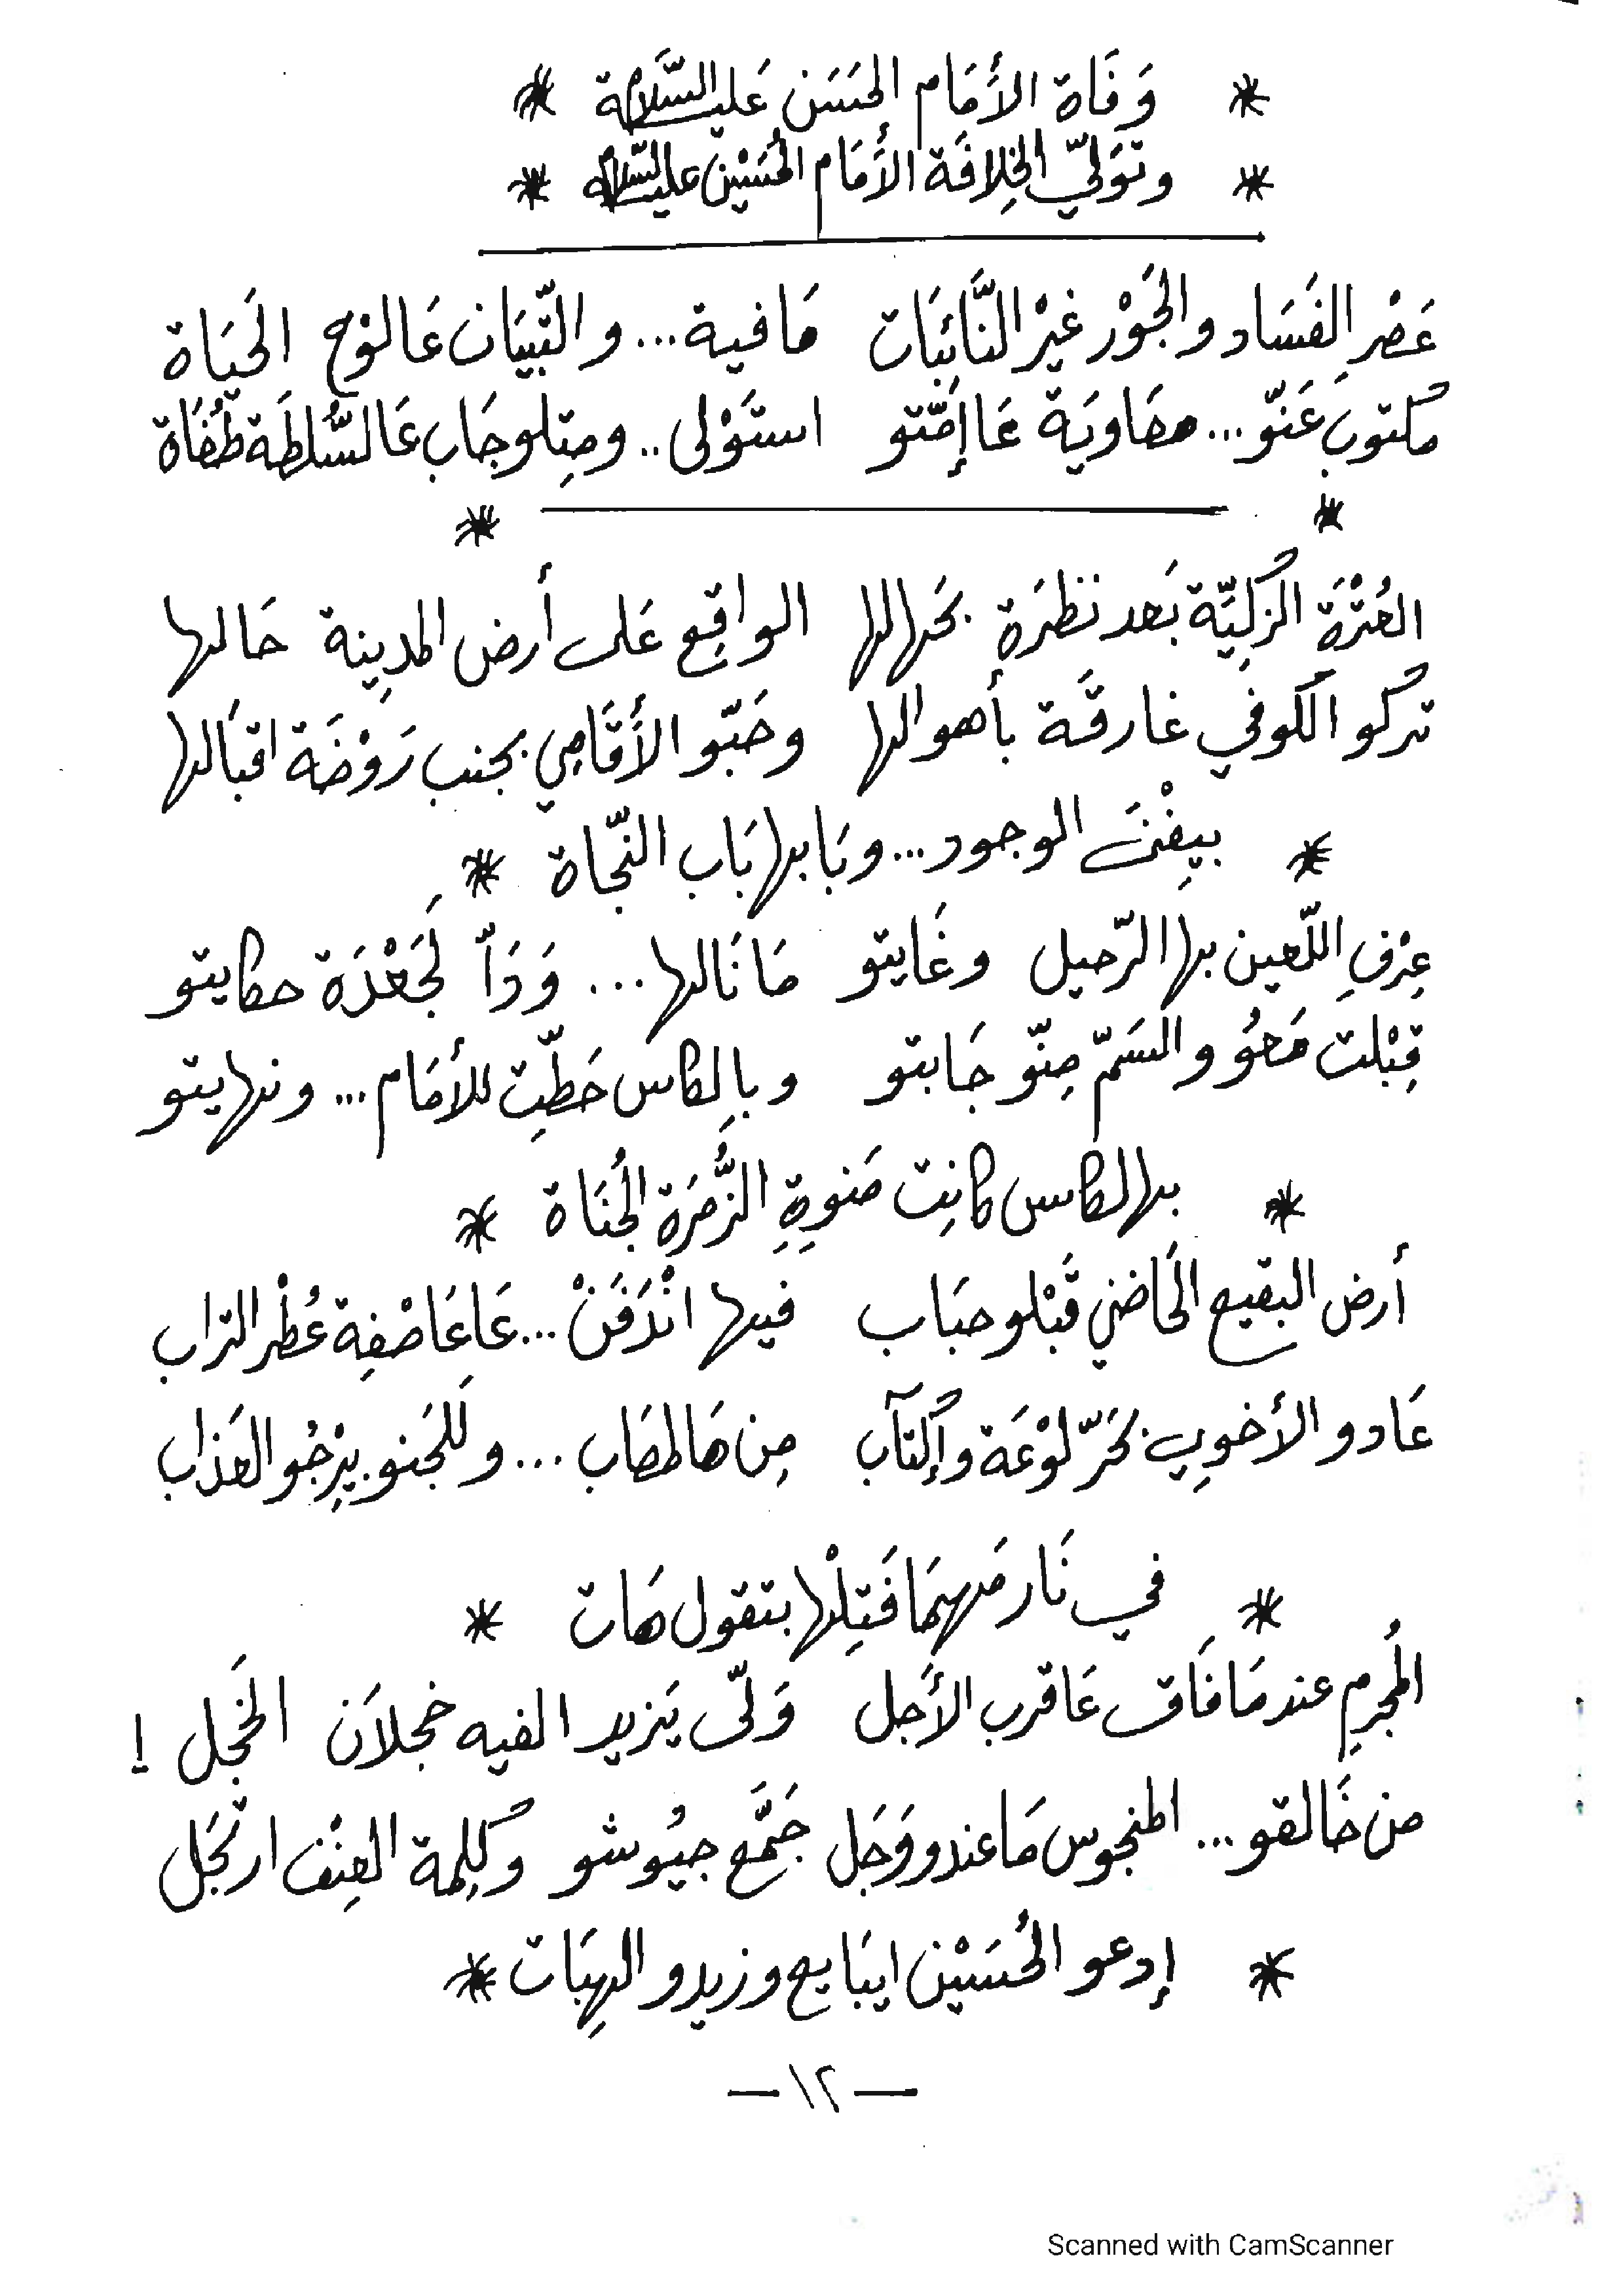 * وَفَاة الأَمَام الحَسَن عَليه السَّلَام *
* وتوَلّي الخِلافَة الأَمَام الحُسَيْن عليه السّلام *
عَصْرِ الفَسَاد والجَوْر غيْر النَّائبَات مَافية... والتّبيَان عَالوْح الحَيَاة
مكتوب عَنّو... معَاويَة عَاإمّتو استَوْلى.. ومِتلو جَاب عَالسُّلطَة طُغَاة
* *
العُتْرَة الزكِيَّة بَعد نظرَة بحَهالها الواقِع عَلى أرض المدِينة حَالها
تركو الكوفي غارقَة بأهوالها وحَبّو الأَقَامِي بجنب رَوْضَة اقبَالها
* بيِفْنَى الوجود... وبَابها بَاب النّجَاة *
عِرْفِ اللّعين بها الرّحيل وغَايتو مَا نَالها... وَدَّا لجَعْدَة حكايتو
قِبْلت مَحوُ والسَمّ مِنّو جَابتو وبالكاس حَطّت للأمَام... ونهايتو
* بهالكاس كانِت مَنوِةِ الزُّمرَة الجُنَاة *
أرض البقيع الحَاضني قَبْلو حبَاب فيها انْدَفَنْ... عَاعَاصْفِة عُطْر التراب
عَادو الأخوِي بحَرّ لوْعَة وإكتآب مِن هَالمصَاب... وللجَنو بيِرْجُو العَذاب
* في نَار مَهمَا فَتِلْها بتقول هَات *
المُجرِم عند مَا فَاق عَا قرب الأَجل وَلّى يَزيد الفيه خجلاَن الخَجل !
من خَالقو... المنجوس مَا عندو وَجَل جَمَّع جيُوشو وكِلمة العِنْف ارتجَل
* إدعو الحُسَيْن ايبَايع وزيدو الهِبَات *
— ١٢ —
Scanned with CamScanner